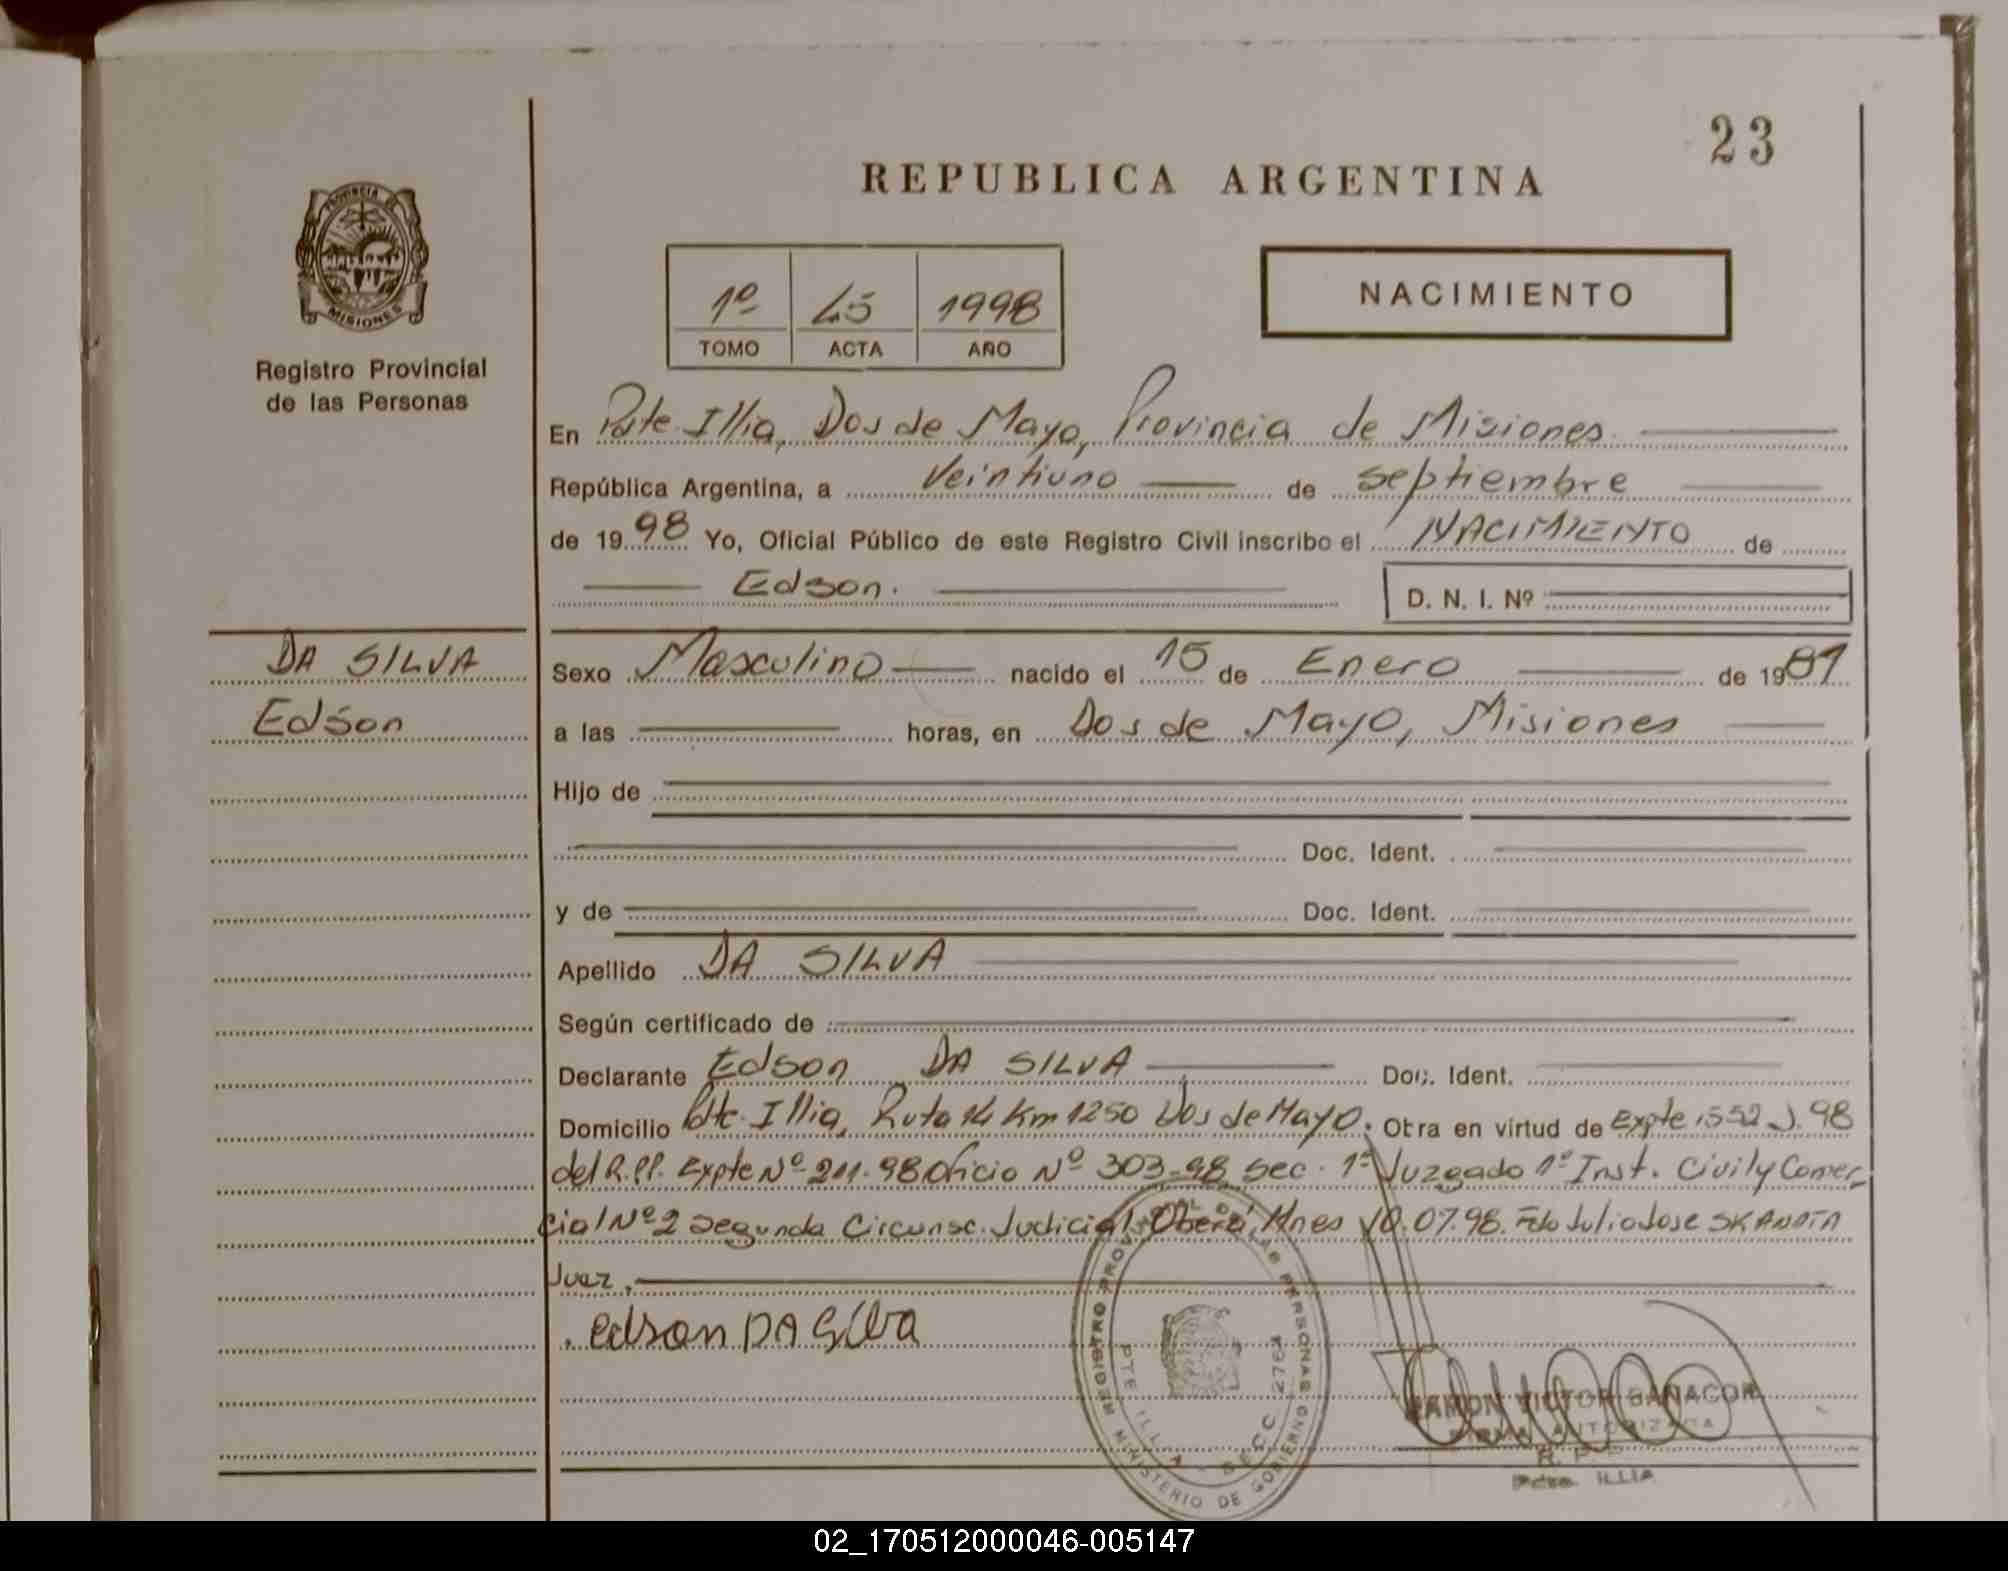 23
REPUBLICA ARGENTINA
PROVINCIA DE
MISIONES
Registro Provincial
de las Personas
1º 45 1998
TOMO ACTA AÑO
NACIMIENTO
En Pdte Illia, Dos de Mayo, Provincia de Misiones
República Argentina, a Veintiuno de septiembre
de 1998 Yo, Oficial Público de este Registro Civil inscribo el NACIMIENTO de
Edson.
D. N. I. Nº
DA SILVA
Edson
Sexo Masculino nacido el 15 de Enero de 1981
a las horas, en Dos de Mayo, Misiones
Hijo de
Doc. Ident.
y de Doc. Ident.
Apellido DA SILVA
Según certificado de
Declarante Edson DA SILVA Doc. Ident.
Domicilio Pdte. Illia, Ruta 14 Km 1250 Dos de Mayo. Otra en virtud de Expte 1552 J. 98
del R.PP. Expte Nº 211-98 Oficio Nº 303-98 Sec. 1ª Juzgado 1ª Inst. Civil y Comer-
cial Nº 2 Segunda Circunsc. Judicial Oberá, Mnes 10.07.98. Fdo Julio Jose
Juez.
edson DA Silva
REGISTRO PROVINCIAL DE LAS PERSONAS
MINISTERIO DE GOBIERNO
PTE ILLIA - SECC 2764
RAMON VICTOR
FIRMA AUTORIZADA
R. P. P.
Pdte. ILLIA
02_170512000046-005147